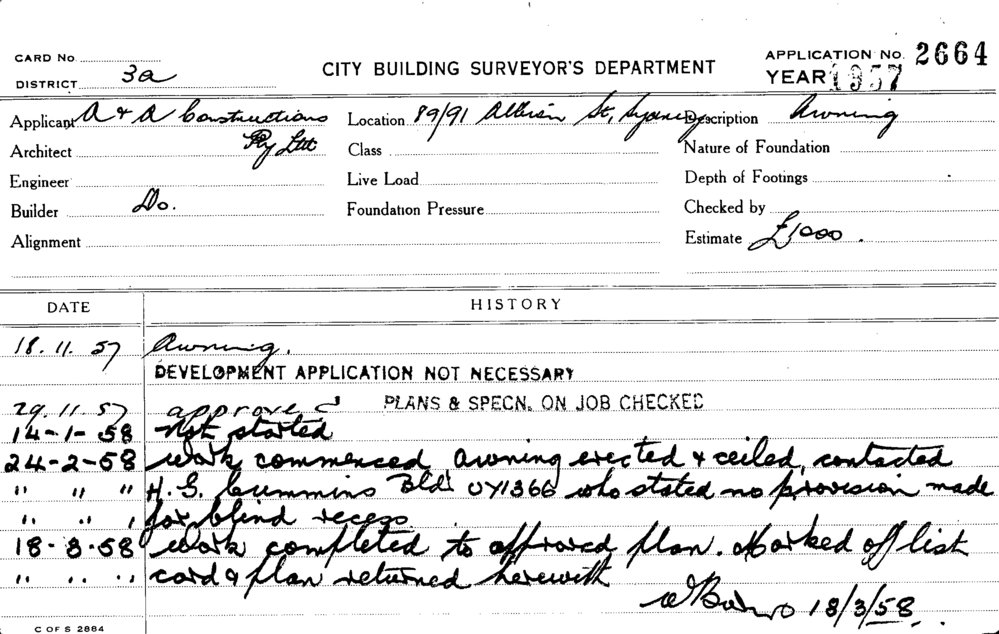 CARD No
DISTRICT 3a
CITY BUILDING SURVEYOR'S DEPARTMENT
APPLICATION No. 2664
YEAR 1957
Applicant A & A Constructions Pty Ltd
Location 89/91 Albion St, Sydney
Description Awning
Architect
Class
Nature of Foundation
Engineer
Live Load
Depth of Footings
Builder Do.
Foundation Pressure
Checked by
Alignment
Estimate £1000.
DATE HISTORY
18.11.57 Awning.
DEVELOPMENT APPLICATION NOT NECESSARY
29.11.57 approved PLANS & SPECN. ON JOB CHECKED
14-1-58 Not started
24-2-58 work commenced, awning erected & ceiled, contacted
" " " H. G. Cummins Bldr UY1366 who stated no provision made
" " " for blind recess
18-3-58 work completed to approved plan. Marked off list
" " " card & plan returned herewith
18/3/58.
C OF S 2884